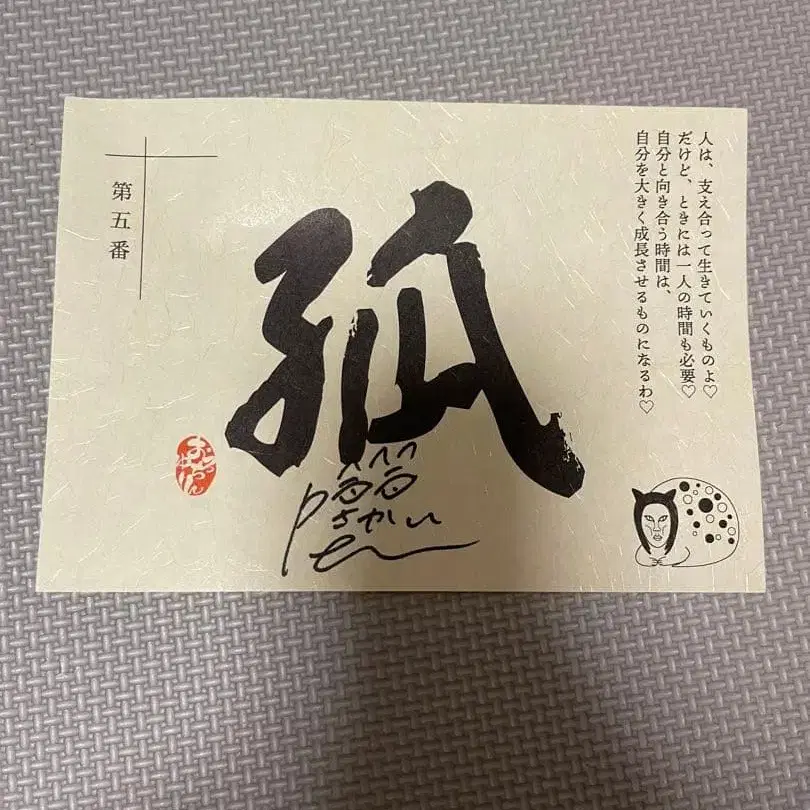 人は、支え合って生きていくものよ♡
だけど、ときには一人の時間も必要♡
自分と向き合う時間は、
自分を大きく成長させるものになるわ♡
孤
第五番
さかい